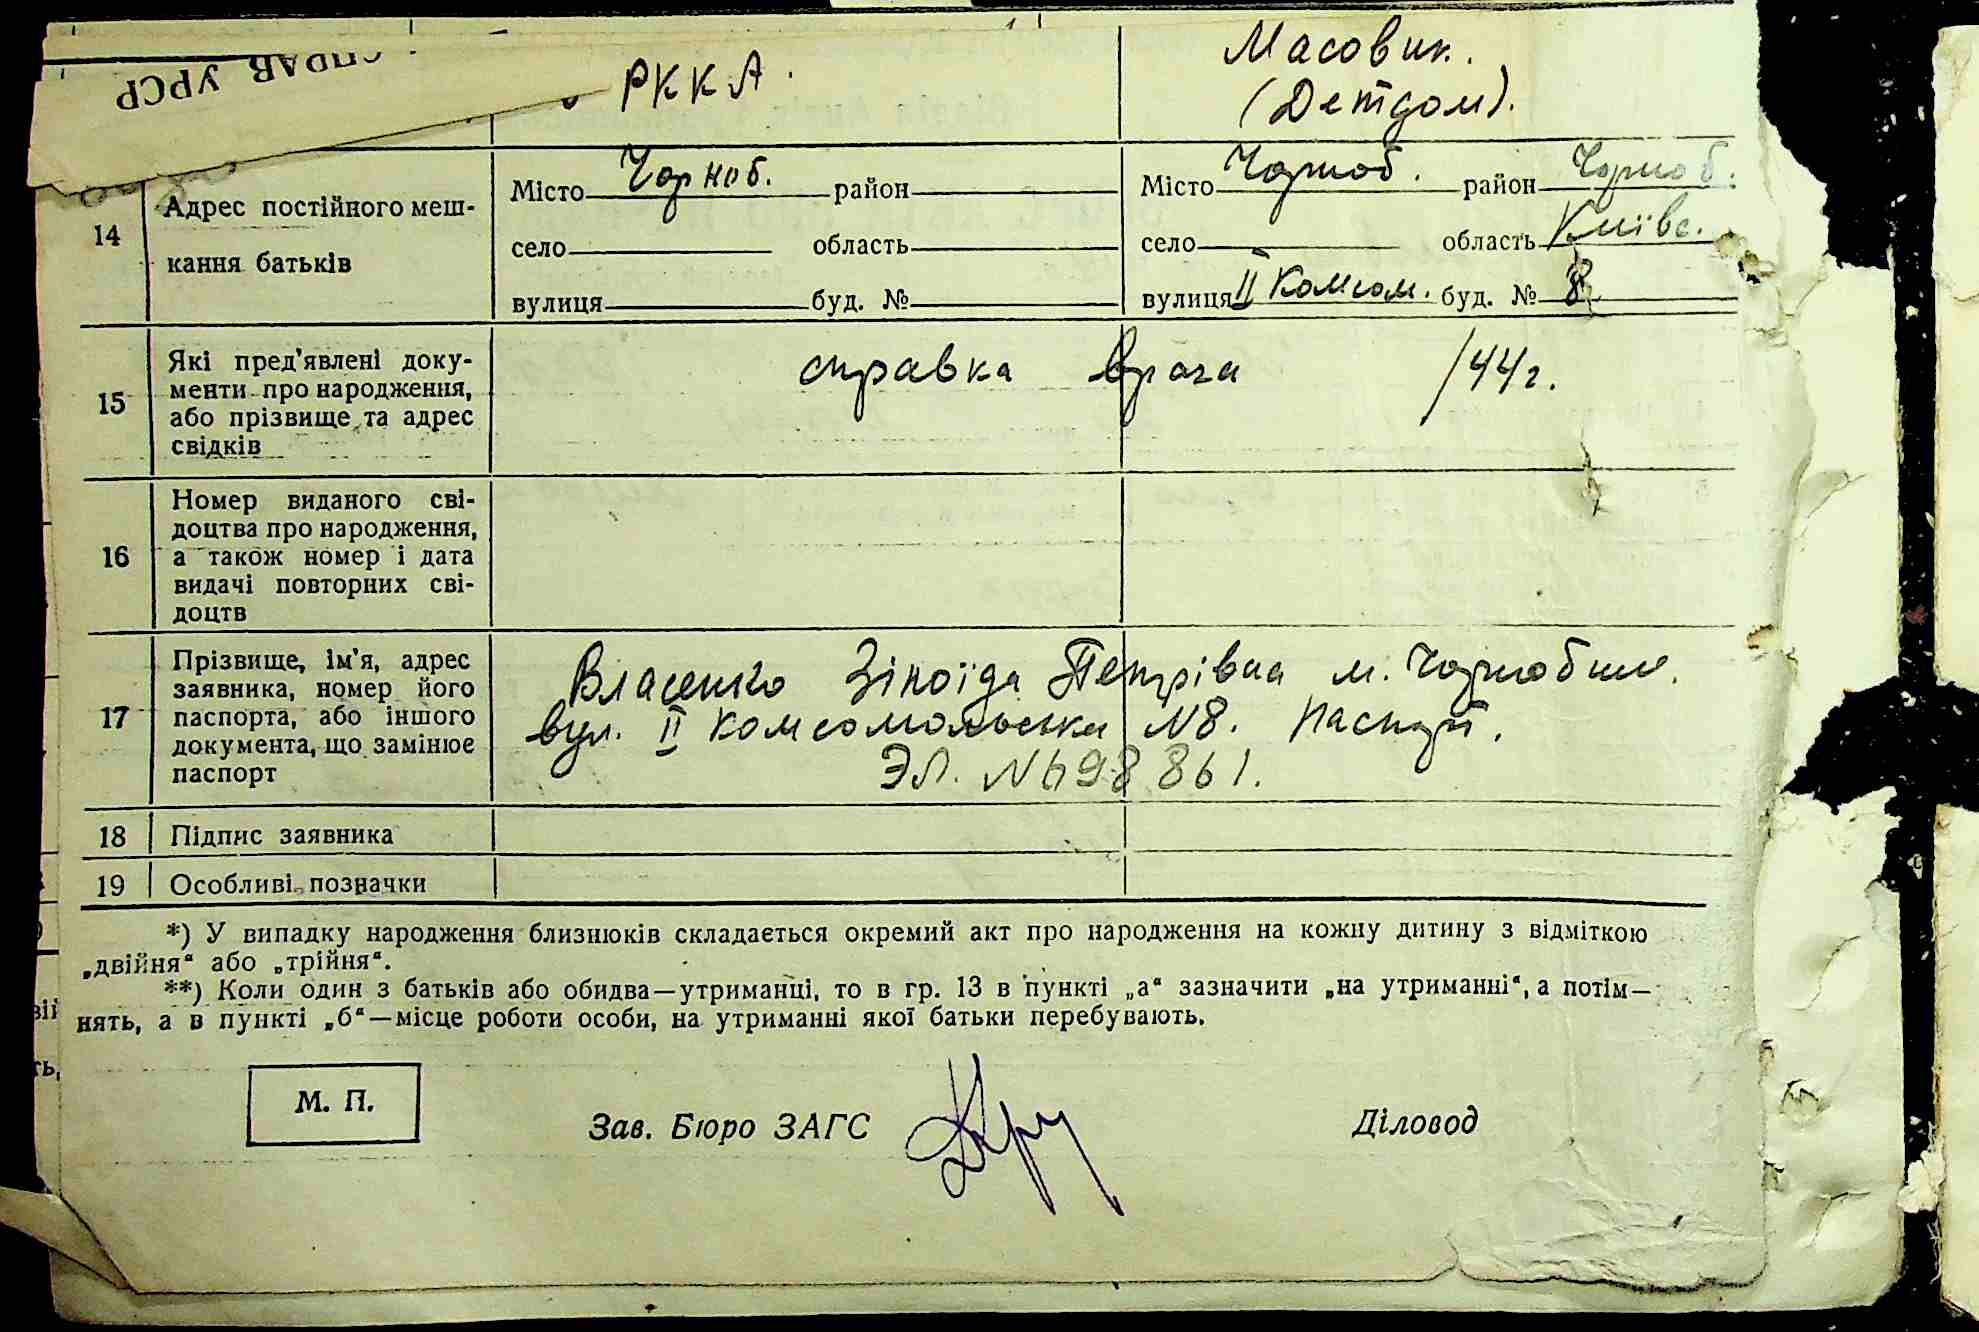 СПРАВ УРСР
РККА.
Масовик.
(Детдом).
14
Адрес постійного меш-
кання батьків
Місто Чорноб. район
село область
вулиця буд. №
Місто Чорноб. район Чорноб.
село область Київс.
вулиця II Комсом. буд. № 8
15
Які пред'явлені доку-
менти про народження,
або прізвище та адрес
свідків
справка врача /44 г.
16
Номер виданого сві-
доцтва про народження,
а також номер і дата
видачі повторних сві-
доцтв
17
Прізвище, ім'я, адрес
заявника, номер його
паспорта, або іншого
документа, що замінює
паспорт
Власенко Зіноїда Петрівна м. Чорнобиль.
вул. II Комсомольська №8. Паспорт.
ЭЛ. №698861.
18 Підпис заявника
19 Особливі позначки
*) У випадку народження близнюків складається окремий акт про народження на кожну дитину з відміткою
„двійня“ або „трійня“.
**) Коли один з батьків або обидва—утриманці, то в гр. 13 в пункті „а“ зазначити „на утриманні“, а потім—
нять, а в пункті „б“—місце роботи особи, на утриманні якої батьки перебувають.
М. П.
Зав. Бюро ЗАГС
Діловод